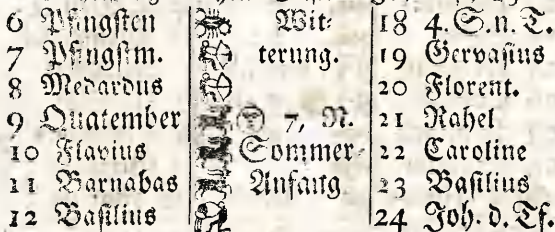 6 Pfingsten Wit- 18 4. S. n. T.
7 Pfingstm. terung. 19 Gervasius
8 Medardus 20 Florent.
9 Quatember 7, N. 21 Rahel
10 Flavius Sommer- 22 Caroline
11 Barnabas Anfang 23 Basilius
12 Basilius 24 Joh. d. Tf.